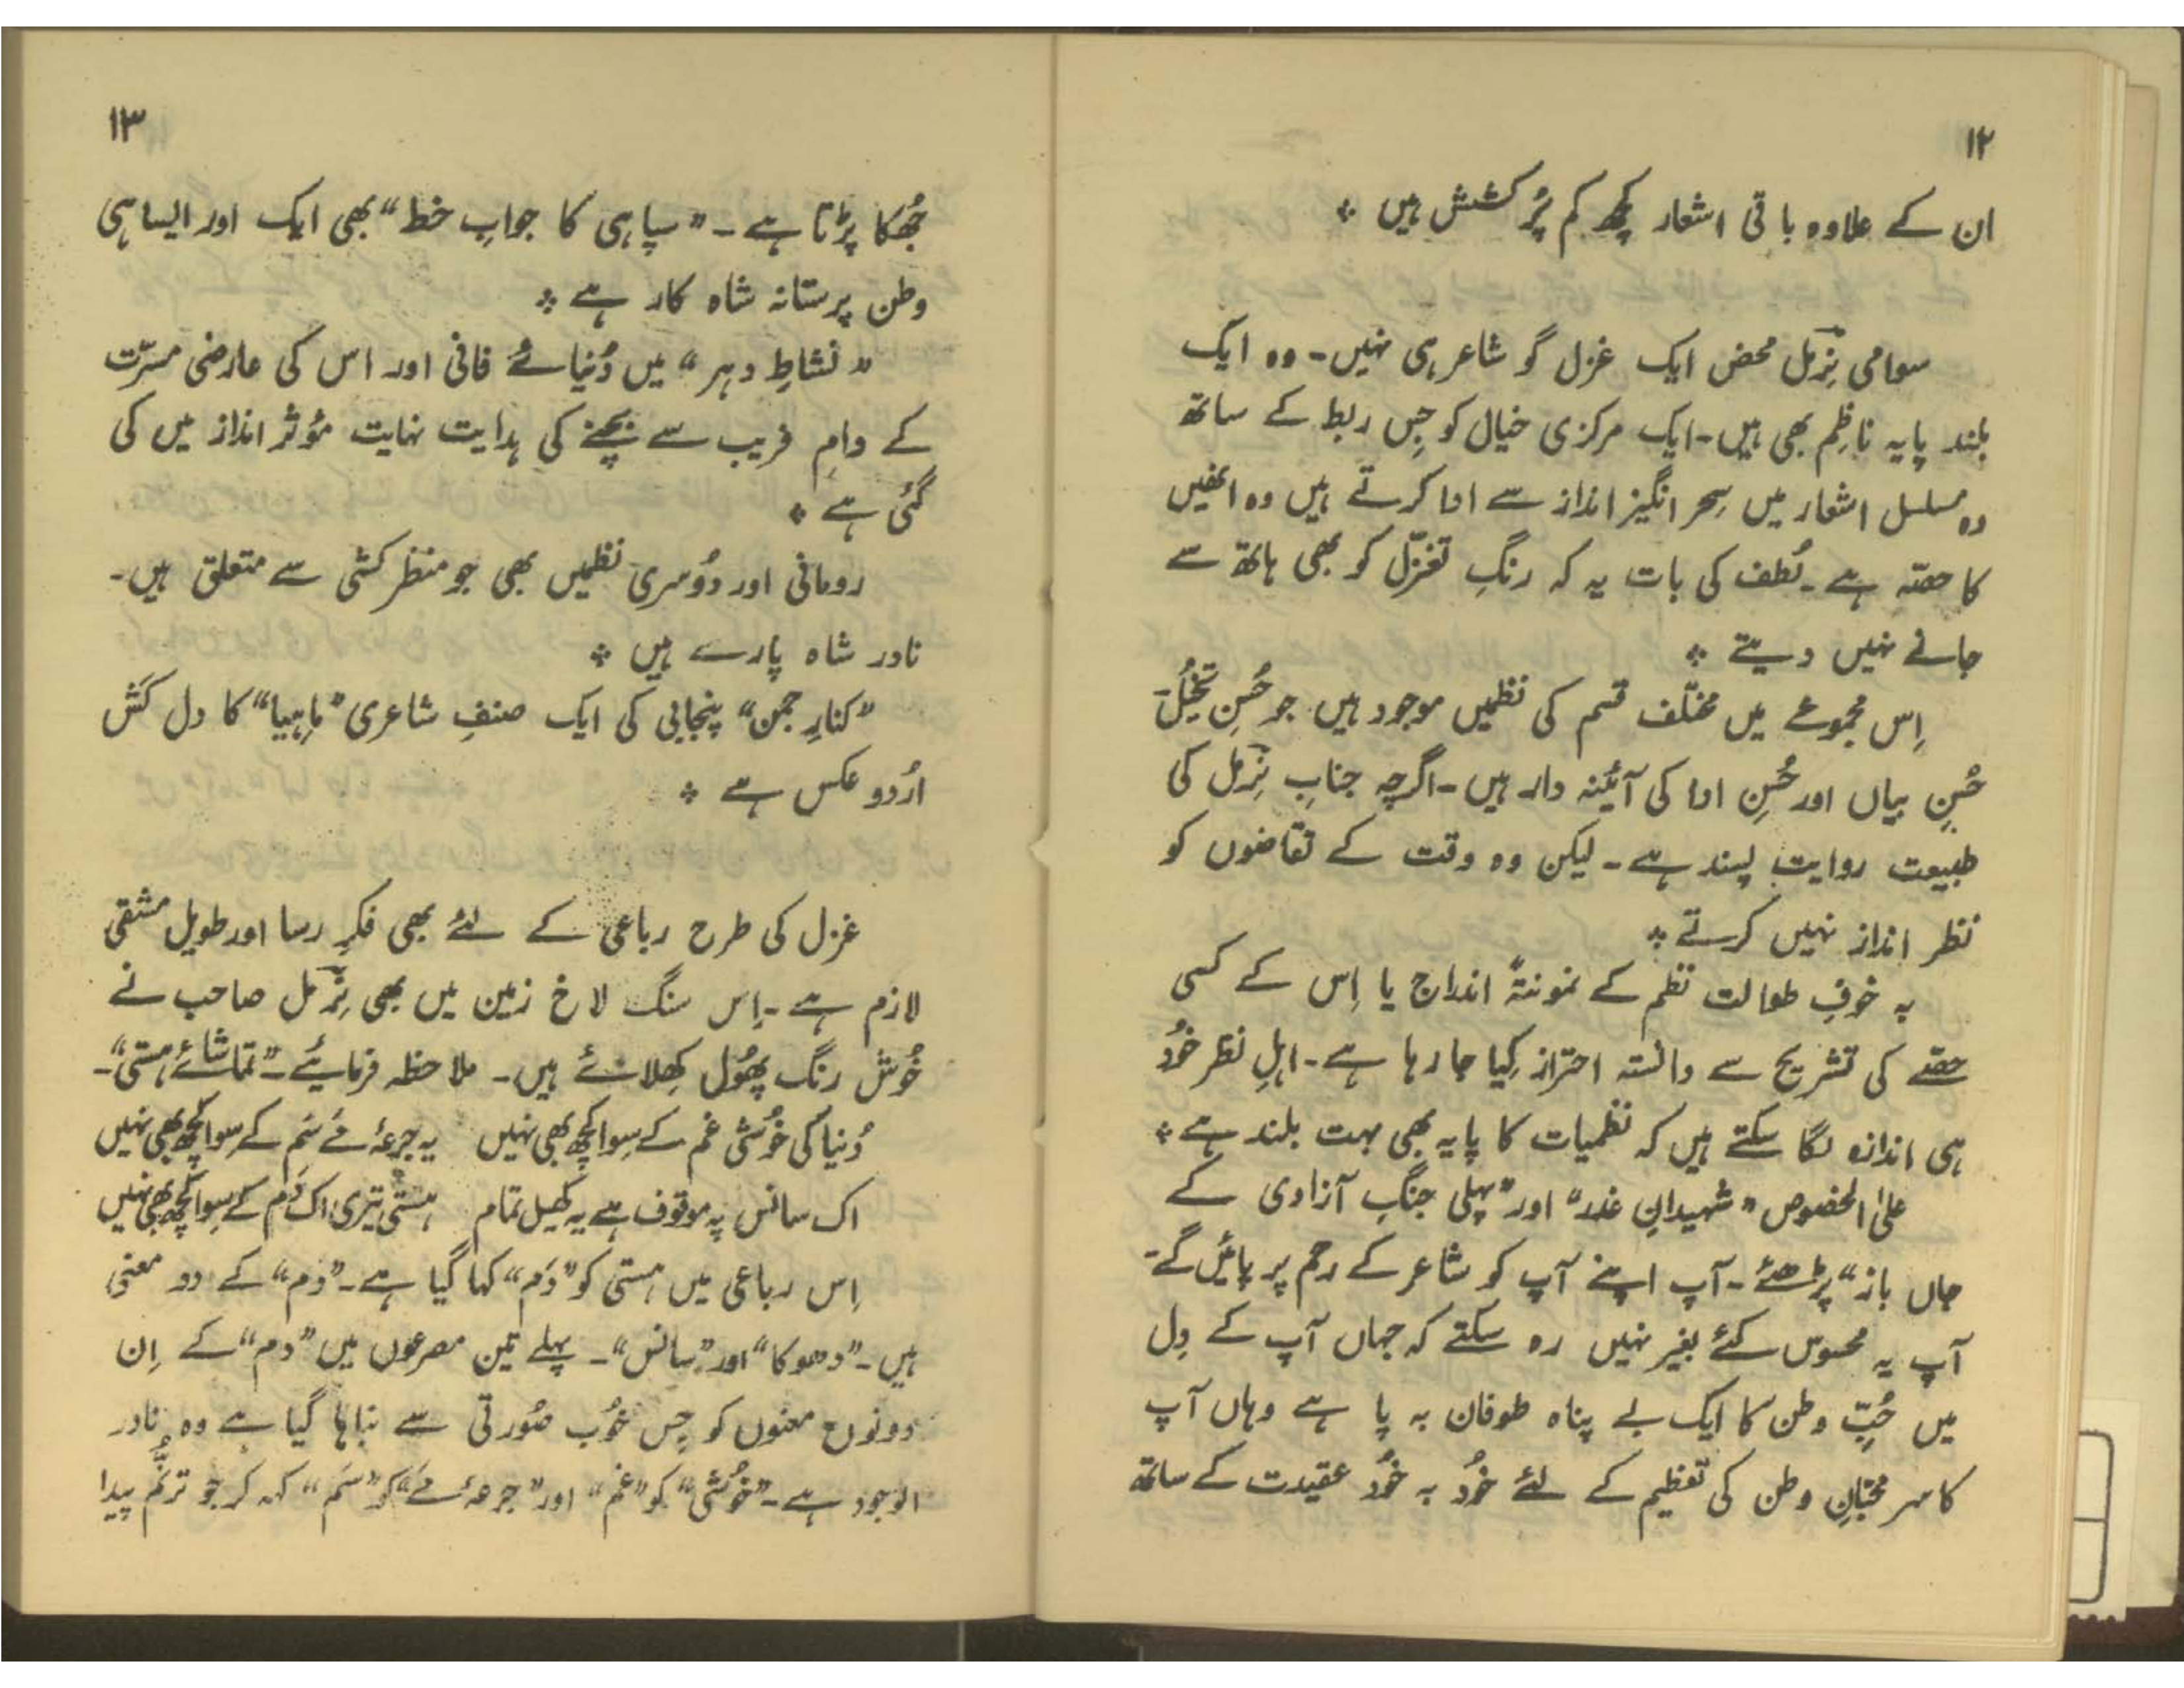 ۱۲
ان کے علاوہ باقی اشعار کچھ کم پُر کشش ہیں ٭
سوامی نِرمل محض ایک غزل گو شاعر ہی نہیں۔ وہ ایک
بلند پایہ ناظِم بھی ہیں۔ ایک مرکزی خیال کو جِس ربط کے ساتھ
وہ مسلسل اشعار میں سِحر انگیز انداز سے ادا کرتے ہیں وہ انھیں
کا حصّہ ہے۔ لُطف کی بات یہ کہ رنگِ تغزّل کو بھی ہاتھ سے
جانے نہیں دیتے ٭
اِس مجموعے میں مختلف قسم کی نظمیں موجود ہیں جو حُسنِ تخیُّل۔
حُسنِ بیاں اور حُسنِ ادا کی آئینہ دار ہیں۔ اگرچہ جنابِ نِرمل کی
طبیعت روایت پسند ہے۔ لیکن وہ وقت کے تقاضوں کو
نظر انداز نہیں کرتے ٭
بہ خوفِ طوالت نظم کے نمونتہً اندراج یا اِس کے کسی
حصّے کی تشریح سے دانستہ احتراز کِیا جا رہا ہے۔ اہلِ نظر خُود
ہی اندازہ لگا سکتے ہیں کہ نظمیات کا پایہ بھی بہت بلند ہے ٭
علیٰ الخصوص "شہیدانِ غدر" اور "پہلی جنگِ آزادی کے
جاں باز" پڑھئے۔ آپ اپنے آپ کو شاعر کے رحم پر پائیں گے۔
آپ یہ محسوس کئے بغیر نہیں رہ سکتے کہ جہاں آپ کے دِل
میں حُبِّ وطن کا ایک بے پناہ طوفان بہ پا ہے وہاں آپ
کا سر محبّانِ وطن کی تعظیم کے لئے خُود بہ خُود عقیدت کے ساتھ
۱۳
جُھکا پڑتا ہے۔ "سپاہی کا جوابِ خط" بھی ایک اور ایسا ہی
وطن پرستانہ شاہ کار ہے ٭
"نشاطِ دہر" میں دُنیائے فانی اور اس کی عارضی مسرّت
کے دامِ فریب سے بچنے کی ہدایت نہایت مؤثر انداز میں کی
گئی ہے ٭
رومانی اور دُوسری نظمیں بھی جو منظر کشی سے متعلق ہیں۔
نادر شاہ پارے ہیں ٭
"کنارِ چمن" پنجابی کی ایک صنفِ شاعری "ماہیا" کا دل کَش
اُردو عکس ہے ٭
غزل کی طرح رباعی کے لئے بھی فکرِ رسا اور طویل مشقی
لازم ہے۔ اِس سنگ لاخ زمین میں بھی نِرمل صاحب نے
خُوش رنگ پھُول کِھلائے ہیں۔ ملاحظہ فرمایئے۔ "تماشائے ہستی"۔
دُنیا کی خُوشی غم کے سِوا کچھ بھی نہیں یہ جرعۂ مے سَم کے سوا کچھ بھی نہیں
اک سانس پہ موقوف ہے یہ کھیل تمام ہستی تیری اک دَم کے سِوا کچھ بھی نہیں
اِس رباعی میں ہستی کو "دَم" کہا گیا ہے۔ "دَم" کے دو معنی
ہیں۔ "دھوکا" اور "سانس"۔ پہلے تین مصرعوں میں "دم" کے اِن
دونوں معنوں کو جِس خُوب صُورتی سے نباہا گیا ہے وہ نادر
الوجود ہے۔ "خُوشی" کو "غم" اور "جرعۂ مے" کو "سَم" کہہ کر جو ترنّم پیدا